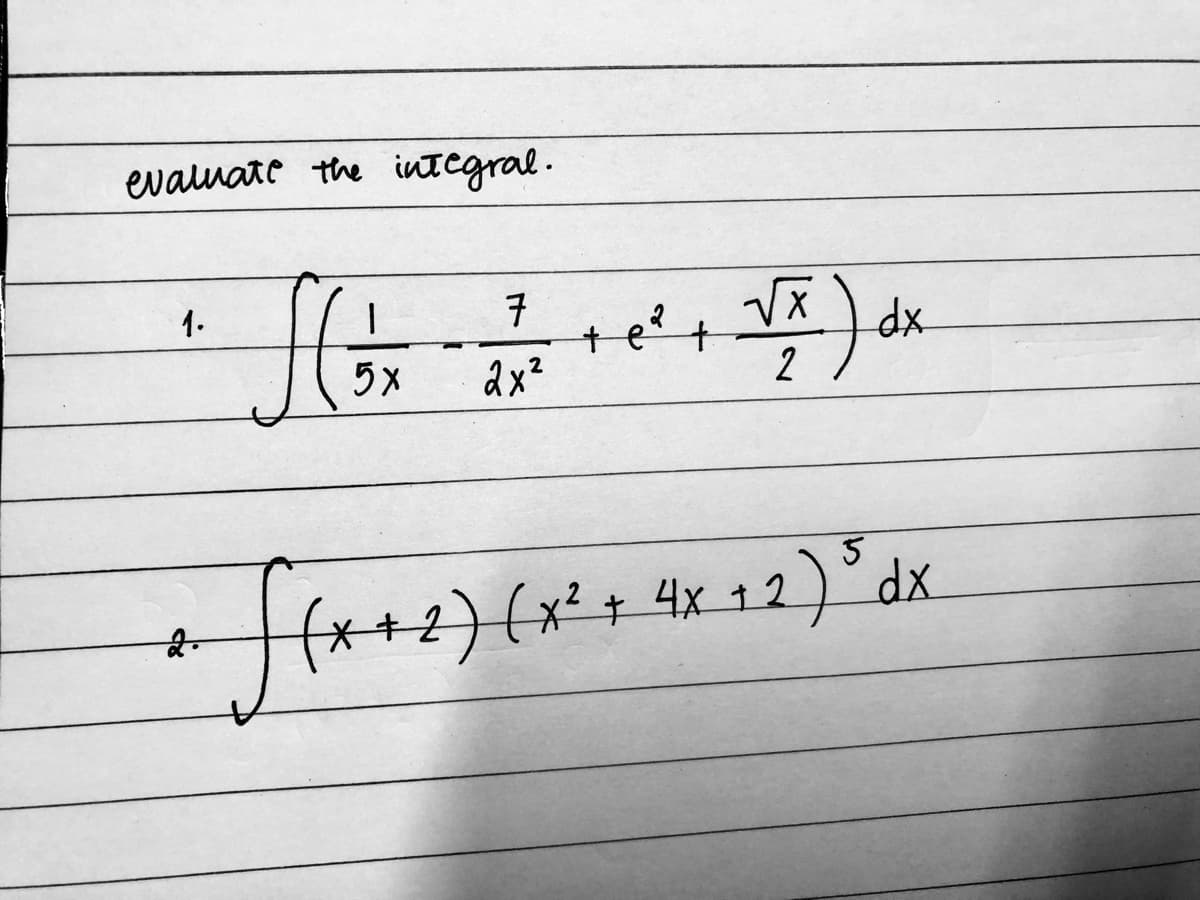 evaluate the integral.
1. ∫ ( 1/5x - 7/2x² + e² + √x/2 ) dx
2. ∫ (x + 2) (x² + 4x + 2)⁵ dx